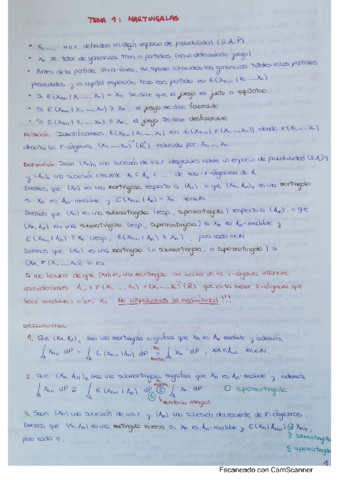 TEMA 1: MARTINGALAS
• X₁, ..., v.a.r. definidas en algún espacio de probabilidad (Ω, A, P)
• Xₙ = total de ganancias tras n partidas
• Antes de la partida (n+1)-ésima, se supone conocidas las ganancias totales de las partidas
previas y el capital esperado tras esa partida es E(Xₙ₊₁ | X₁, ..., Xₙ)
• Si E(Xₙ₊₁ | X₁, ..., Xₙ) = Xₙ se dice que el juego es justo o equitativo
• Si E(Xₙ₊₁ | X₁, ..., Xₙ) ≥ Xₙ, el juego se dice favorable
• Si E(Xₙ₊₁ | X₁, ..., Xₙ) ≤ Xₙ, el juego se dice desfavorable
Notación: Identificaremos E(Xₙ₊₁ | X₁, ..., Xₙ) con E(Xₙ₊₁ | σ(X₁, ..., Xₙ)) donde σ(X₁, ..., Xₙ)
denota la σ-álgebra (X₁, ..., Xₙ)⁻¹(Rⁿ) inducida por X₁, ..., Xₙ.
Definición: Sean (Xₙ)ₙ una sucesión de v.a.r. integrables sobre un espacio de probabilidad (Ω, A, P)
y (Aₙ)ₙ una sucesión creciente A₁ ⊂ A₂ ⊂ ... de sub-σ-álgebras de A.
Diremos que (Xₙ) es una martingala respecto a (Aₙ), o que (Xₙ, Aₙ)ₙ es una martingala
si Xₙ es Aₙ-medible y E(Xₙ₊₁ | Aₙ) = Xₙ ∀n∈N
Diremos que (Xₙ) es una submartingala (resp., supermartingala) respecto a (Aₙ), o que
(Xₙ, Aₙ) es una submartingala (resp., supermartingala), si Xₙ es Aₙ-medible y
E(Xₙ₊₁ | Aₙ) ≥ Xₙ (resp., E(Xₙ₊₁ | Aₙ) ≤ Xₙ), para cada n∈N
Diremos que (Xₙ) es una martingala (o submartingala, o supermartingala) si
(Xₙ, σ(X₁, ..., Xₙ)) lo es.
que (Xₙ) es una martingala sin hablar de la σ-álgebra, entonces
consideramos Aₙ = σ(X₁, ..., Xₙ) = (X₁, ..., Xₙ)⁻¹(Rⁿ) que es la menor σ-álgebra que
hace medibles a las Xₙ. No
OBSERVACIONES:
1. Que (Xₙ, Aₙ)ₙ sea una martingala significa que Xₙ es Aₙ-medible y además,
∫_A Xₙ₊₁ dP = ∫_A E(Xₙ₊₁ | Aₙ) dP = ∫_A Xₙ dP, ∀A∈Aₙ, ∀n∈N
2. Que (Xₙ, Aₙ)ₙ sea una submartingala significa que Xₙ es Aₙ-medible y, además,
∫_A Xₙ₊₁ dP = ∫_A E(Xₙ₊₁ | Aₙ) dP ≥ ∫_A Xₙ dP ≤ supermartingala
3. Sean (Xₙ) una sucesión de v.a.r. y (Aₙ) una sucesión decreciente de σ-álgebras.
Diremos que (Xₙ, Aₙ) es una martingala inversa si Xₙ es Aₙ-medible y E(Xₙ | Aₙ₊₁) = Xₙ₊₁,
para cada n.
≥ submartingala
≤ supermartingala
1
Escaneado con CamScanner